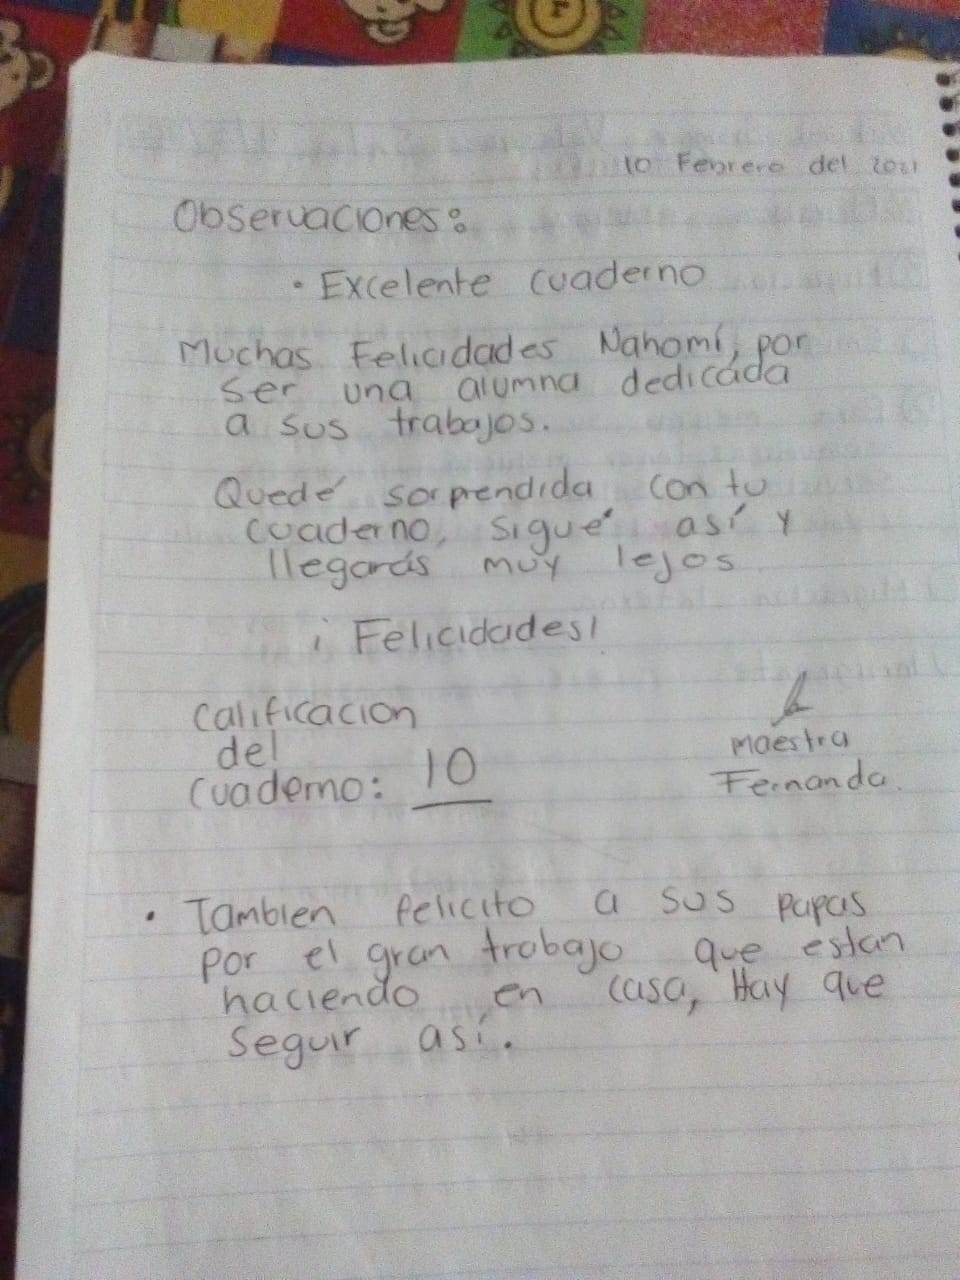 10 Febrero del 2021
Observaciones:
• Excelente cuaderno
Muchas Felicidades Nahomí, por
ser una alumna dedicada
a sus trabajos.
Quedé sorprendida con tu
cuaderno, sigué así y
llegarás muy lejos
¡Felicidades!
Calificacion
del
cuaderno: 10
maestra
Fernanda.
• Tambien felicito a sus papas
por el gran trabajo que estan
haciendo en casa, Hay que
seguir así.